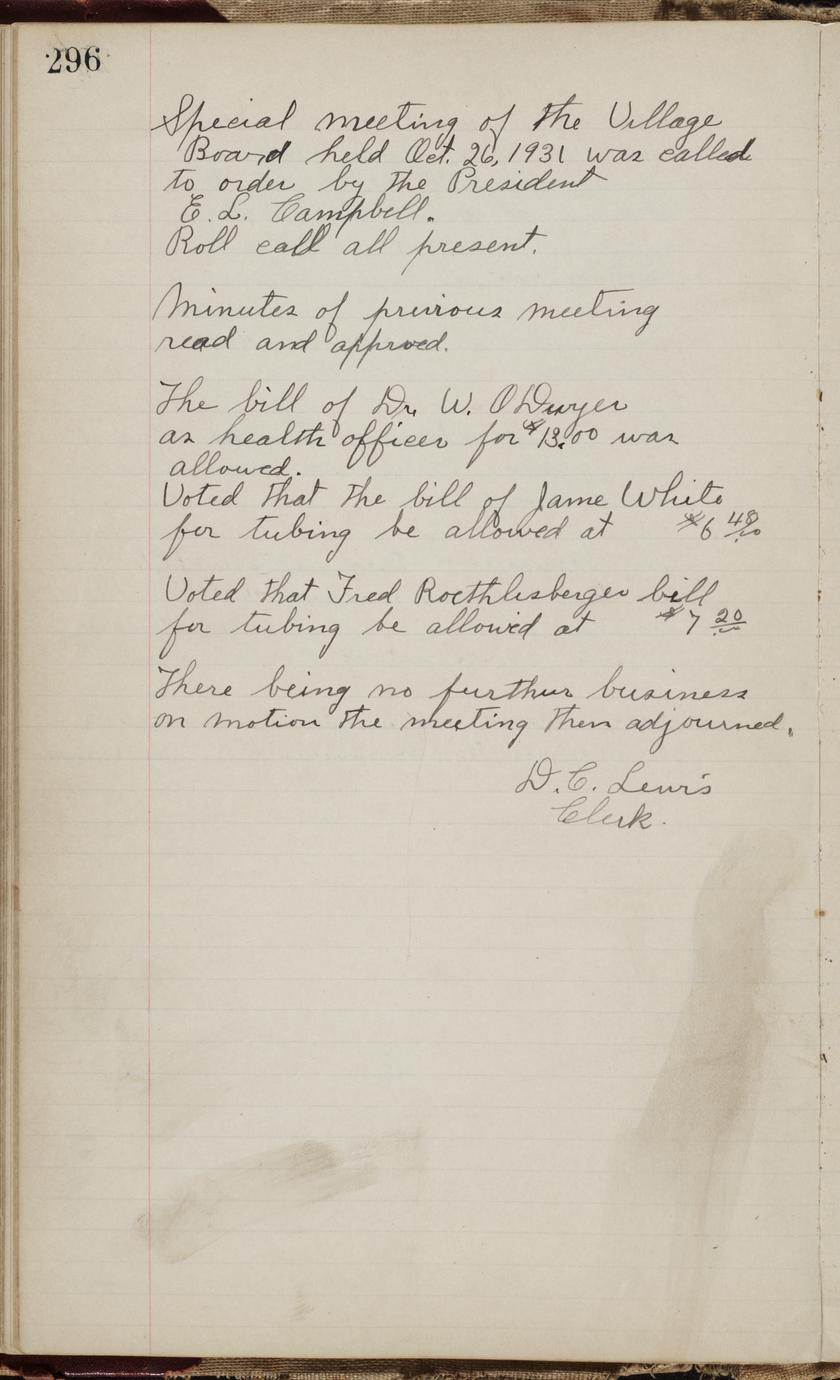 296
Special meeting of the Village
Board held Oct. 26, 1931 was called
to order by the President
E. L. Campbell.
Roll call all present.
Minutes of previous meeting
read and approved.
The bill of Dr. W. O'Dwyer
as health officer for $13.00 was
allowed.
Voted that the bill of Jame White
for tubing be allowed at $6 48/00
Voted that Fred Roethlisberger bill
for tubing be allowed at $7 20
There being no further business
on motion the meeting then adjourned.
D. C. Lewis
Clerk.